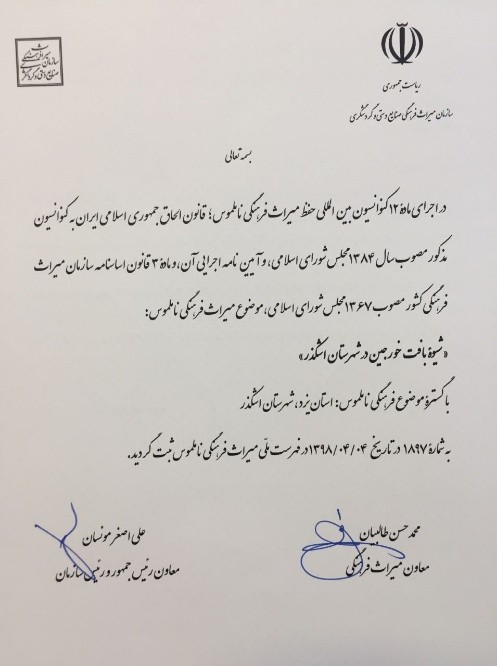 سازمان میراث فرهنگی
صنایع دستی و گردشگری
ریاست جمهوری
سازمان میراث فرهنگی صنایع دستی و گردشگری
بسمه تعالی
در اجرای مادهٔ ۱۲ کنوانسیون بین المللی حفظ میراث فرهنگی ناملموس؛ قانون الحاق جمهوری اسلامی ایران به کنوانسیون
مذکور مصوب سال ۱۳۸۴ مجلس شورای اسلامی، و آیین نامه اجرایی آن، و مادهٔ ۳ قانون اساسنامه سازمان میراث
فرهنگی کشور مصوب ۱۳۶۷ مجلس شورای اسلامی، موضوع میراث فرهنگی ناملموس:
«شیوهٔ بافت خورجین در شهرستان اشکذر»
با گسترهٔ موضوع فرهنگی ناملموس: استان یزد، شهرستان اشکذر
به شمارهٔ ۱۸۹۷ در تاریخ ۱۳۹۸/۰۴/۰۴ در فهرست ملّی میراث فرهنگی ناملموس ثبت گردید.
محمدحسن طالبیان
معاون میراث فرهنگی
علی اصغر مونسان
معاون رئیس جمهور و رئیس سازمان